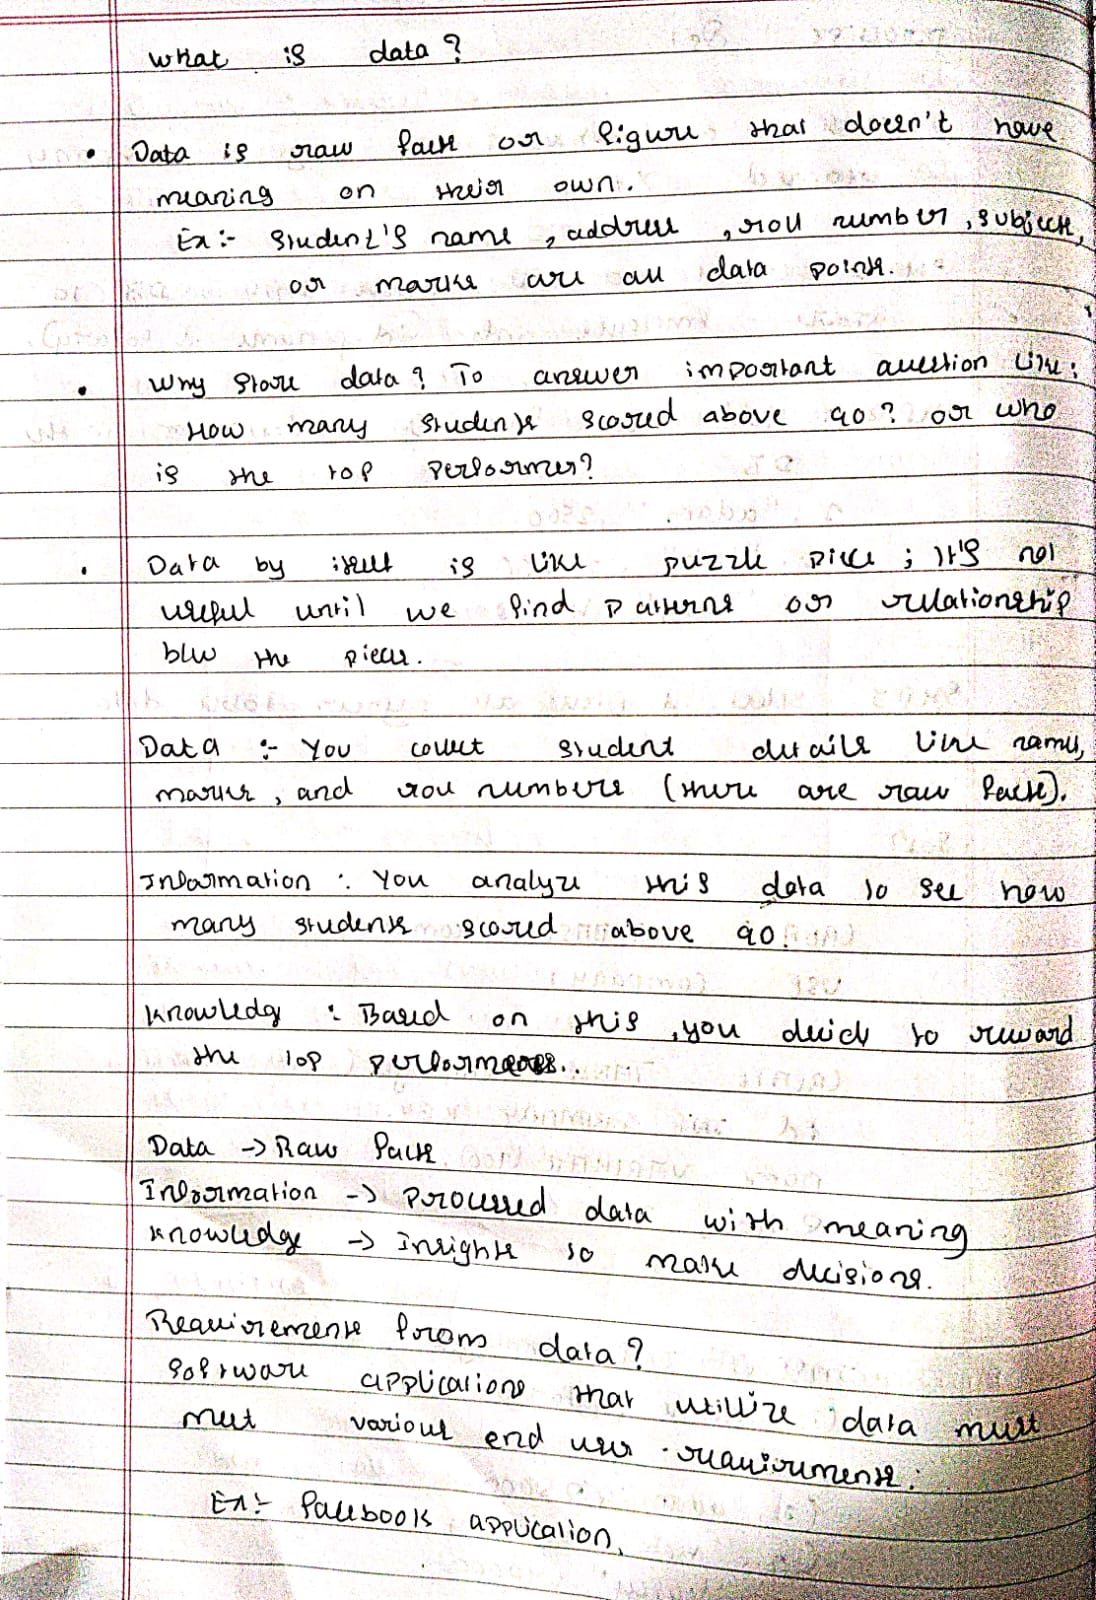 What is data?
• Data is raw facts or figure that doesn't have
meaning on their own.
Ex:- Student's name, address, roll number, subjects,
or marks are all data points.
• Why store data? To answer important question like:
How many students scored above 90? or who
is the top performer?
• Data by itself is like puzzle piece; It's not
useful until we find patterns or relationship
b/w the pieces.
Data :- You collect student details like names,
marks, and roll numbers (these are raw facts).
Information : You analyze this data to see how
many students scored above 90.
Knowledge : Based on this, you decide to reward
the top performers..
Data -> Raw facts
Information -> processed data with meaning
Knowledge -> Insights to make decisions.
Requirements from data?
Software applications that utillize data must
meet various end user requirements:
Ex:- facebook application,